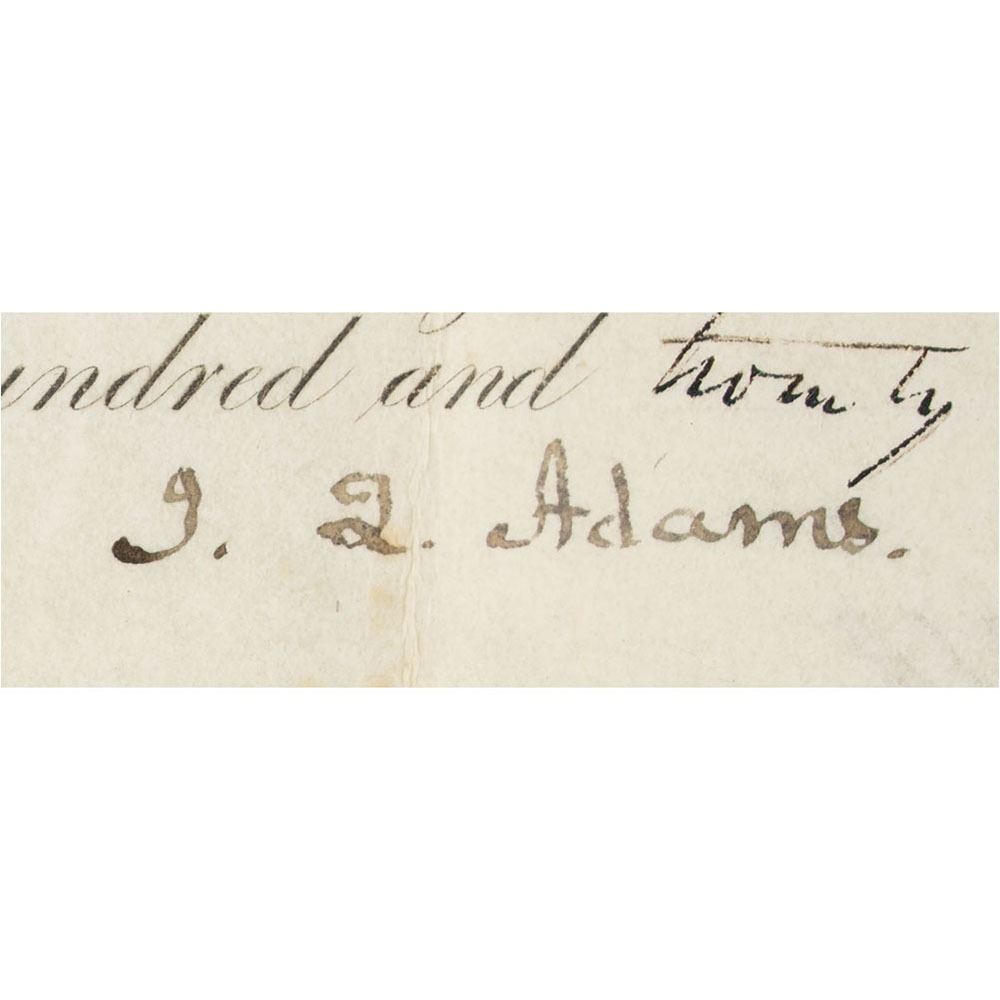 undred and twenty
J. Q. Adams.